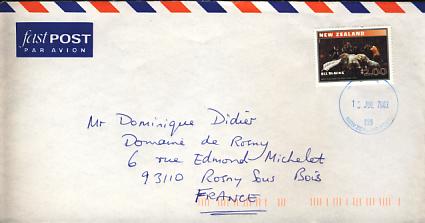 fastPOST
PAR AVION
NEW ZEALAND
ALL BLACKS
$2.00
Mr Dominique Didier
Domaine de Rosny
6 rue Edmond Michelet
93110 Rosny Sous Bois
FRANCE